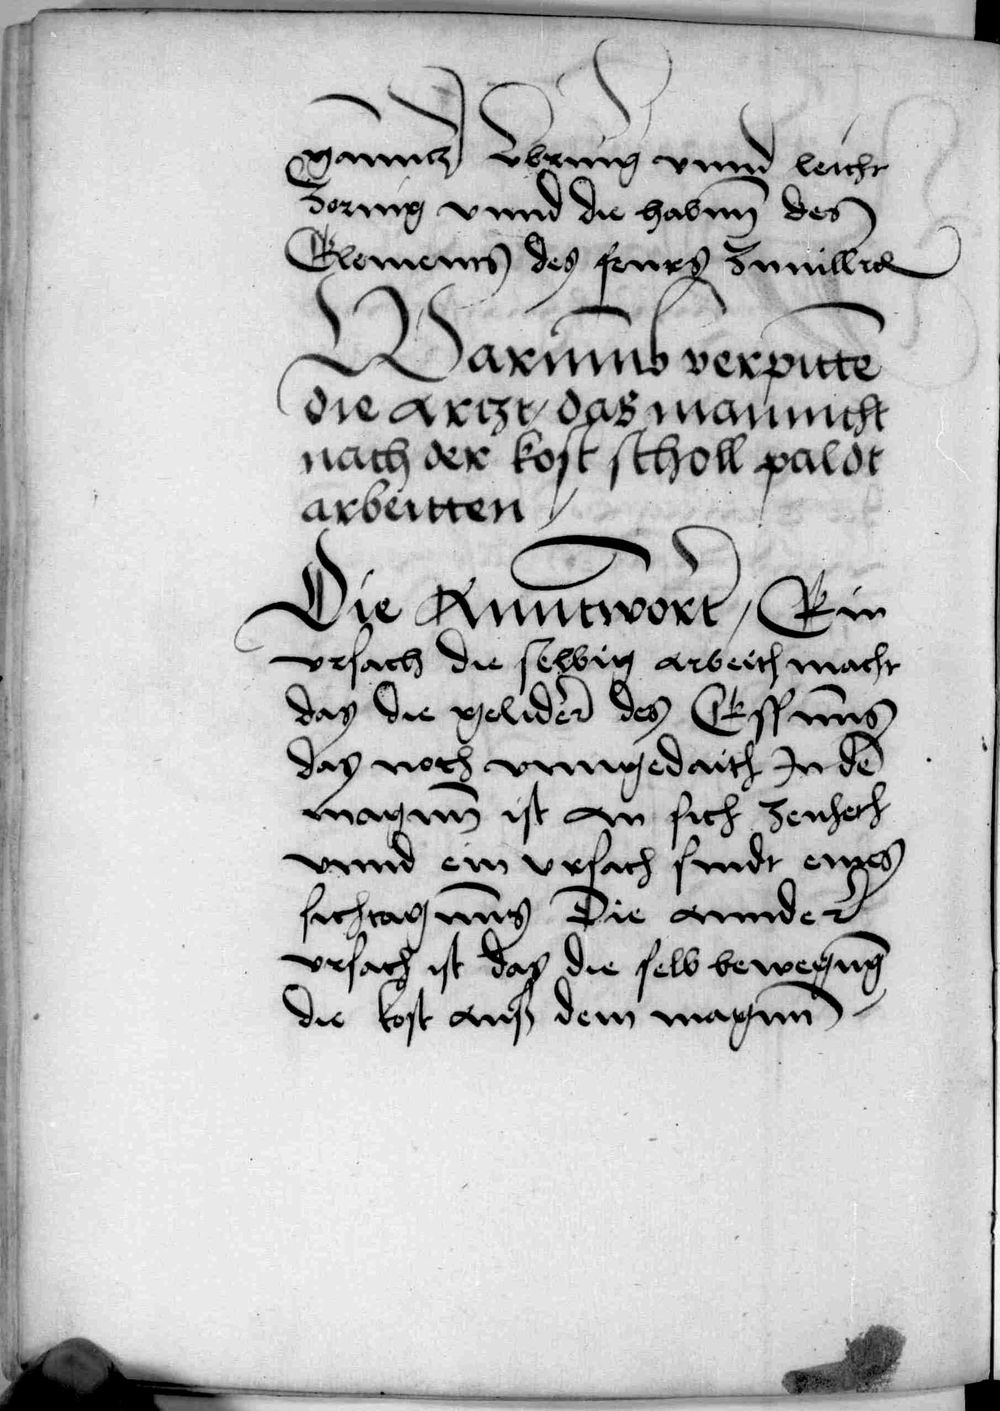 ganntz Vbring vnnd leicht
Zornig vnnd die habnn des
Elements des feurs
Warumb verpitten
die artzt / das man nicht
nach der kost scholl paldt
arbeitten /
Die Anntwort / Ein
vrsach die selbig arbeith macht
das die gelider des Essnns
das noch vnngedaith In de
magnn ist an sich zeuheth
vnnd ein vrsach sindt eines
sichtagnns Die annder
vrsach ist das die selb bewegung
die kost auß dem magnn